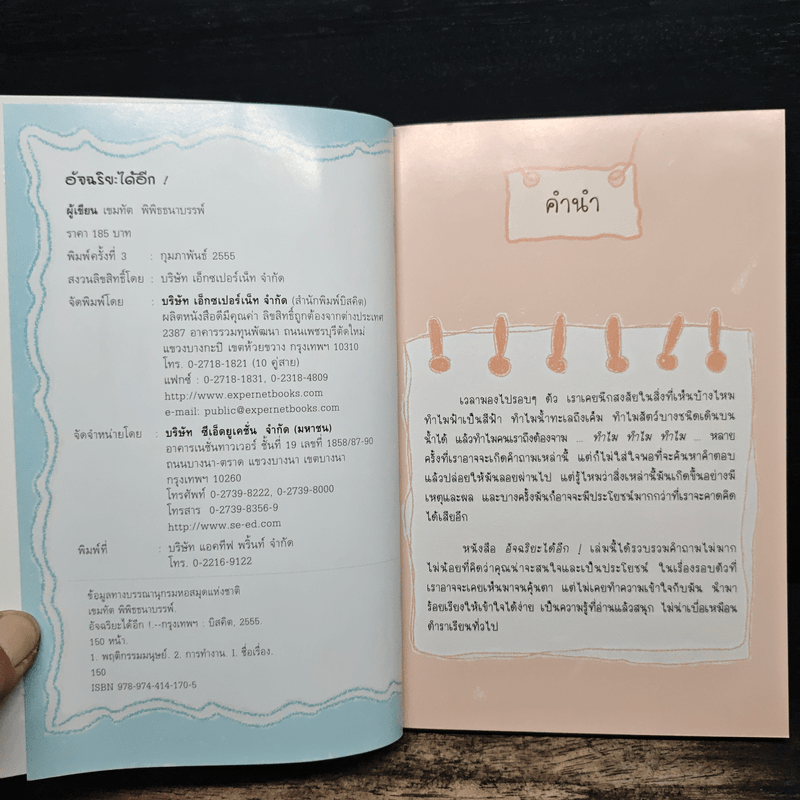 อัจฉริยะได้อีก !
ผู้เขียน เขมทัต พิพิธธนาบรรพ์
ราคา 185 บาท
พิมพ์ครั้งที่ 3 : กุมภาพันธ์ 2555
สงวนลิขสิทธิ์โดย : บริษัท เอ็กซเปอร์เน็ท จำกัด
จัดพิมพ์โดย : บริษัท เอ็กซเปอร์เน็ท จำกัด (สำนักพิมพ์บิสคิต)
ผลิตหนังสือดีมีคุณค่า ลิขสิทธิ์ถูกต้องจากต่างประเทศ
2387 อาคารรวมทุนพัฒนา ถนนเพชรบุรีตัดใหม่
แขวงบางกะปิ เขตห้วยขวาง กรุงเทพฯ 10310
โทร. 0-2718-1821 (10 คู่สาย)
แฟกซ์ : 0-2718-1831, 0-2318-4809
http://www.expernetbooks.com
e-mail: public@expernetbooks.com
จัดจำหน่ายโดย : บริษัท ซีเอ็ดยูเคชั่น จำกัด (มหาชน)
อาคารเนชั่นทาวเวอร์ ชั้นที่ 19 เลขที่ 1858/87-90
ถนนบางนา-ตราด แขวงบางนา เขตบางนา
กรุงเทพฯ 10260
โทรศัพท์ 0-2739-8222, 0-2739-8000
โทรสาร 0-2739-8356-9
http://www.se-ed.com
พิมพ์ที่ : บริษัท แอคทีฟ พริ้นท์ จำกัด
โทร. 0-2216-9122
ข้อมูลทางบรรณานุกรมหอสมุดแห่งชาติ
เขมทัต พิพิธธนาบรรพ์.
อัจฉริยะได้อีก !.--กรุงเทพฯ : บิสคิต, 2555.
150 หน้า.
1. พฤติกรรมมนุษย์. 2. การทำงาน. I. ชื่อเรื่อง.
150
ISBN 978-974-414-170-5
คำนำ
เวลามองไปรอบๆ ตัว เราเคยนึกสงสัยในสิ่งที่เห็นบ้างไหม
ทำไมฟ้าเป็นสีฟ้า ทำไมน้ำทะเลถึงเค็ม ทำไมสัตว์บางชนิดเดินบน
น้ำได้ แล้วทำไมคนเราถึงต้องจาม ... ทำไม ทำไม ทำไม ... หลาย
ครั้งที่เราอาจจะเกิดคำถามเหล่านี้ แต่ก็ไม่ใส่ใจพอที่จะค้นหาคำตอบ
แล้วปล่อยให้มันลอยผ่านไป แต่รู้ไหมว่าสิ่งเหล่านี้มันเกิดขึ้นอย่างมี
เหตุและผล และบางครั้งมันก็อาจจะมีประโยชน์มากกว่าที่เราจะคาดคิด
ได้เสียอีก
หนังสือ อัจฉริยะได้อีก ! เล่มนี้ได้รวบรวมคำถามไม่มาก
ไม่น้อยที่คิดว่าคุณน่าจะสนใจและเป็นประโยชน์ ในเรื่องรอบตัวที่
เราอาจจะเคยเห็นมาจนคุ้นตา แต่ไม่เคยทำความเข้าใจกับมัน นำมา
ร้อยเรียงให้เข้าใจได้ง่าย เป็นความรู้ที่อ่านแล้วสนุก ไม่น่าเบื่อเหมือน
ตำราเรียนทั่วไป